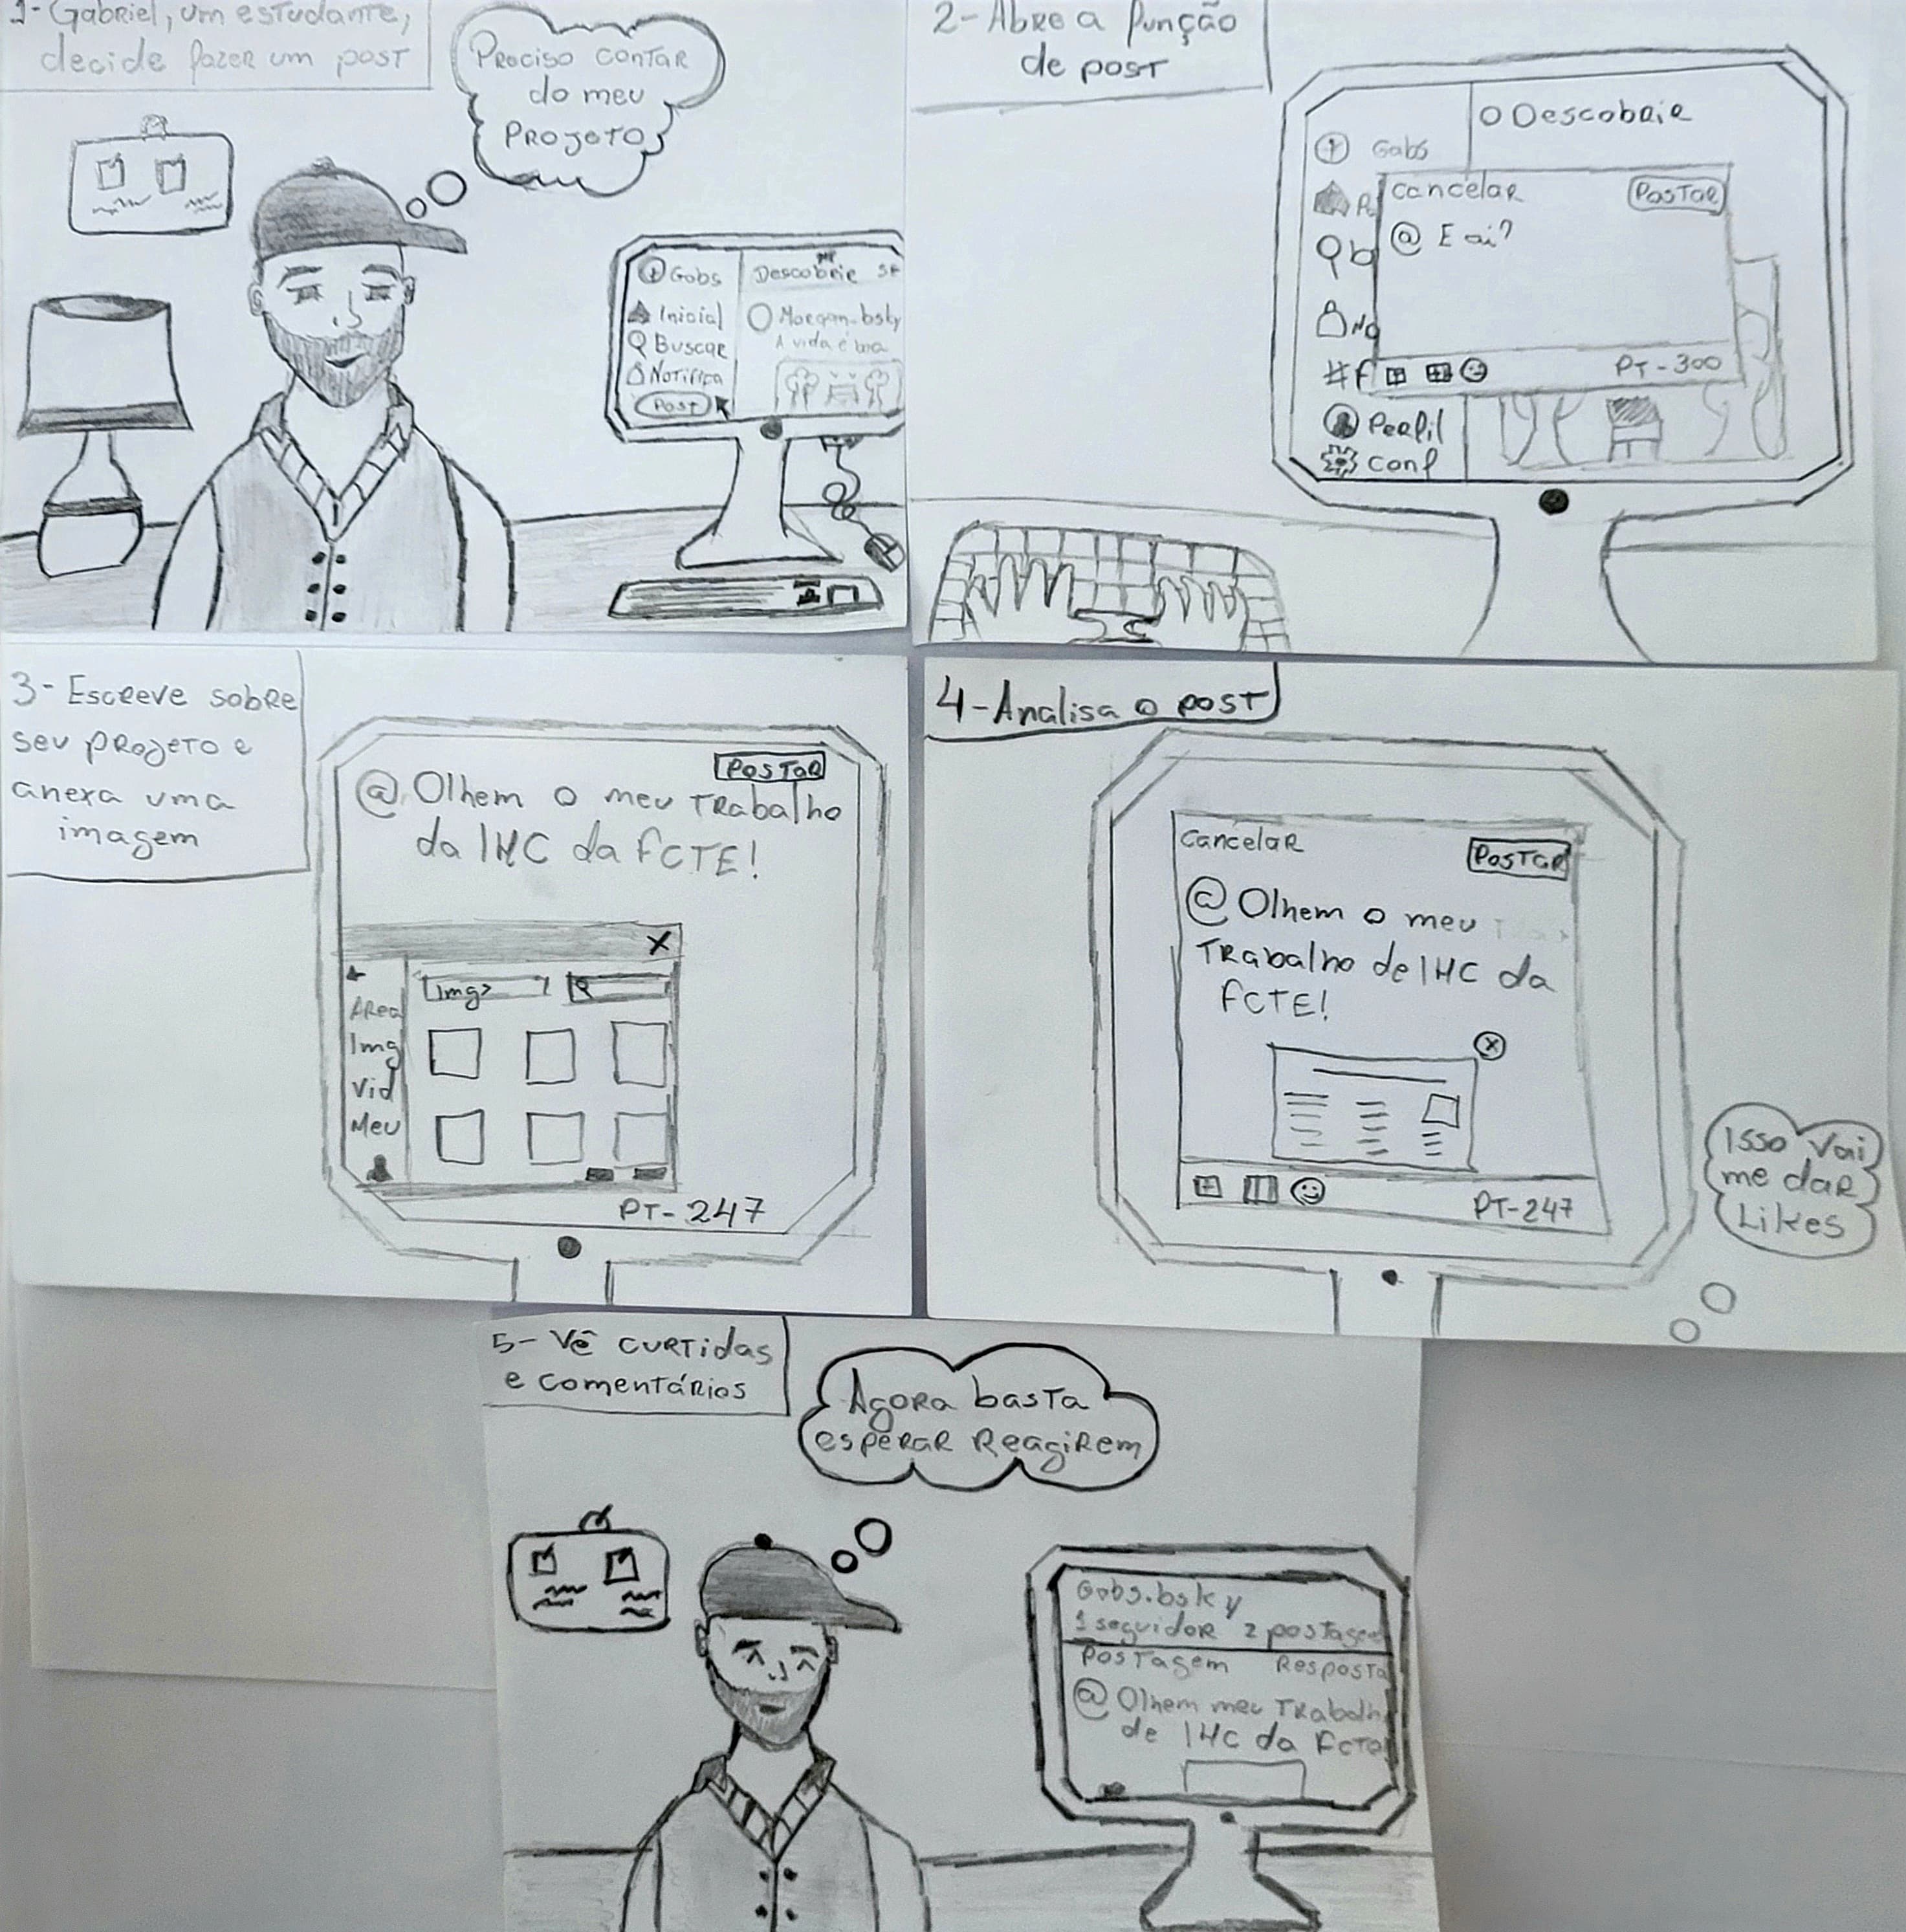 1- Gabriel, um estudante,
decide fazer um post
Preciso contar
do meu
PROJETO
Gabs
Inicial
Buscar
Notifica
Post
Descobrir
Morgan.bsky
A vida é boa
2- Abre a função
de post
Descobrir
Gabs
Cancelar
Postar
@ E ai?
PT-300
#F
Perfil
Conf
3- Escreve sobre
seu projeto e
anexa uma
imagem
Postar
@ Olhem o meu Trabalho
da IHC da FCTE!
X
img>
Area
Img
Vid
Meu
PT-247
4- Analisa o post
Cancelar
Postar
@ Olhem o meu
Trabalho de IHC da
FCTE!
X
PT-247
Isso vai
me dar
Likes
5- Vê curtidas
e comentários
Agora basta
esperar reagirem
Gabs.bsky
1 seguidor 2 postagen
Postagem Resposta
@ Olhem meu Trabalh
de IHC da FCTE!